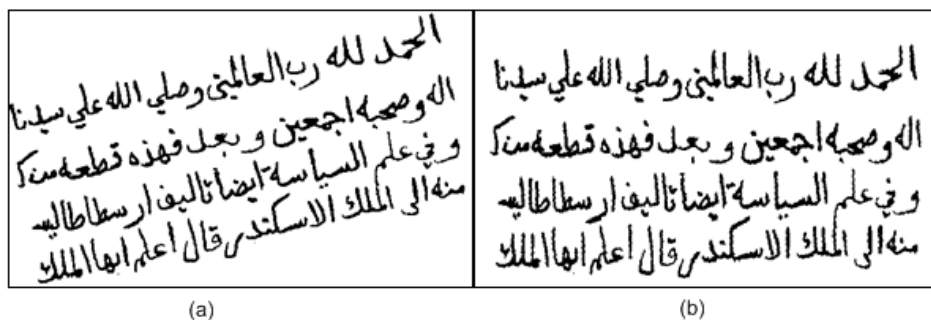 الحمد لله رب العالمين وصلي الله علي سيدنا
اله وصحبه اجمعين وبعد فهذه قطعه من ك
وفي علم السياسة ايضا تاليف ارسطاطاليس
منه الى الملك الاسكندر قال اعلم ايها الملك
(a)
الحمد لله رب العالمين وصلي الله علي سيدنا
اله وصحبه اجمعين وبعد فهذه قطعه من ك
وفي علم السياسة ايضا تاليف ارسطاطاليس
منه الى الملك الاسكندر قال اعلم ايها الملك
(b)